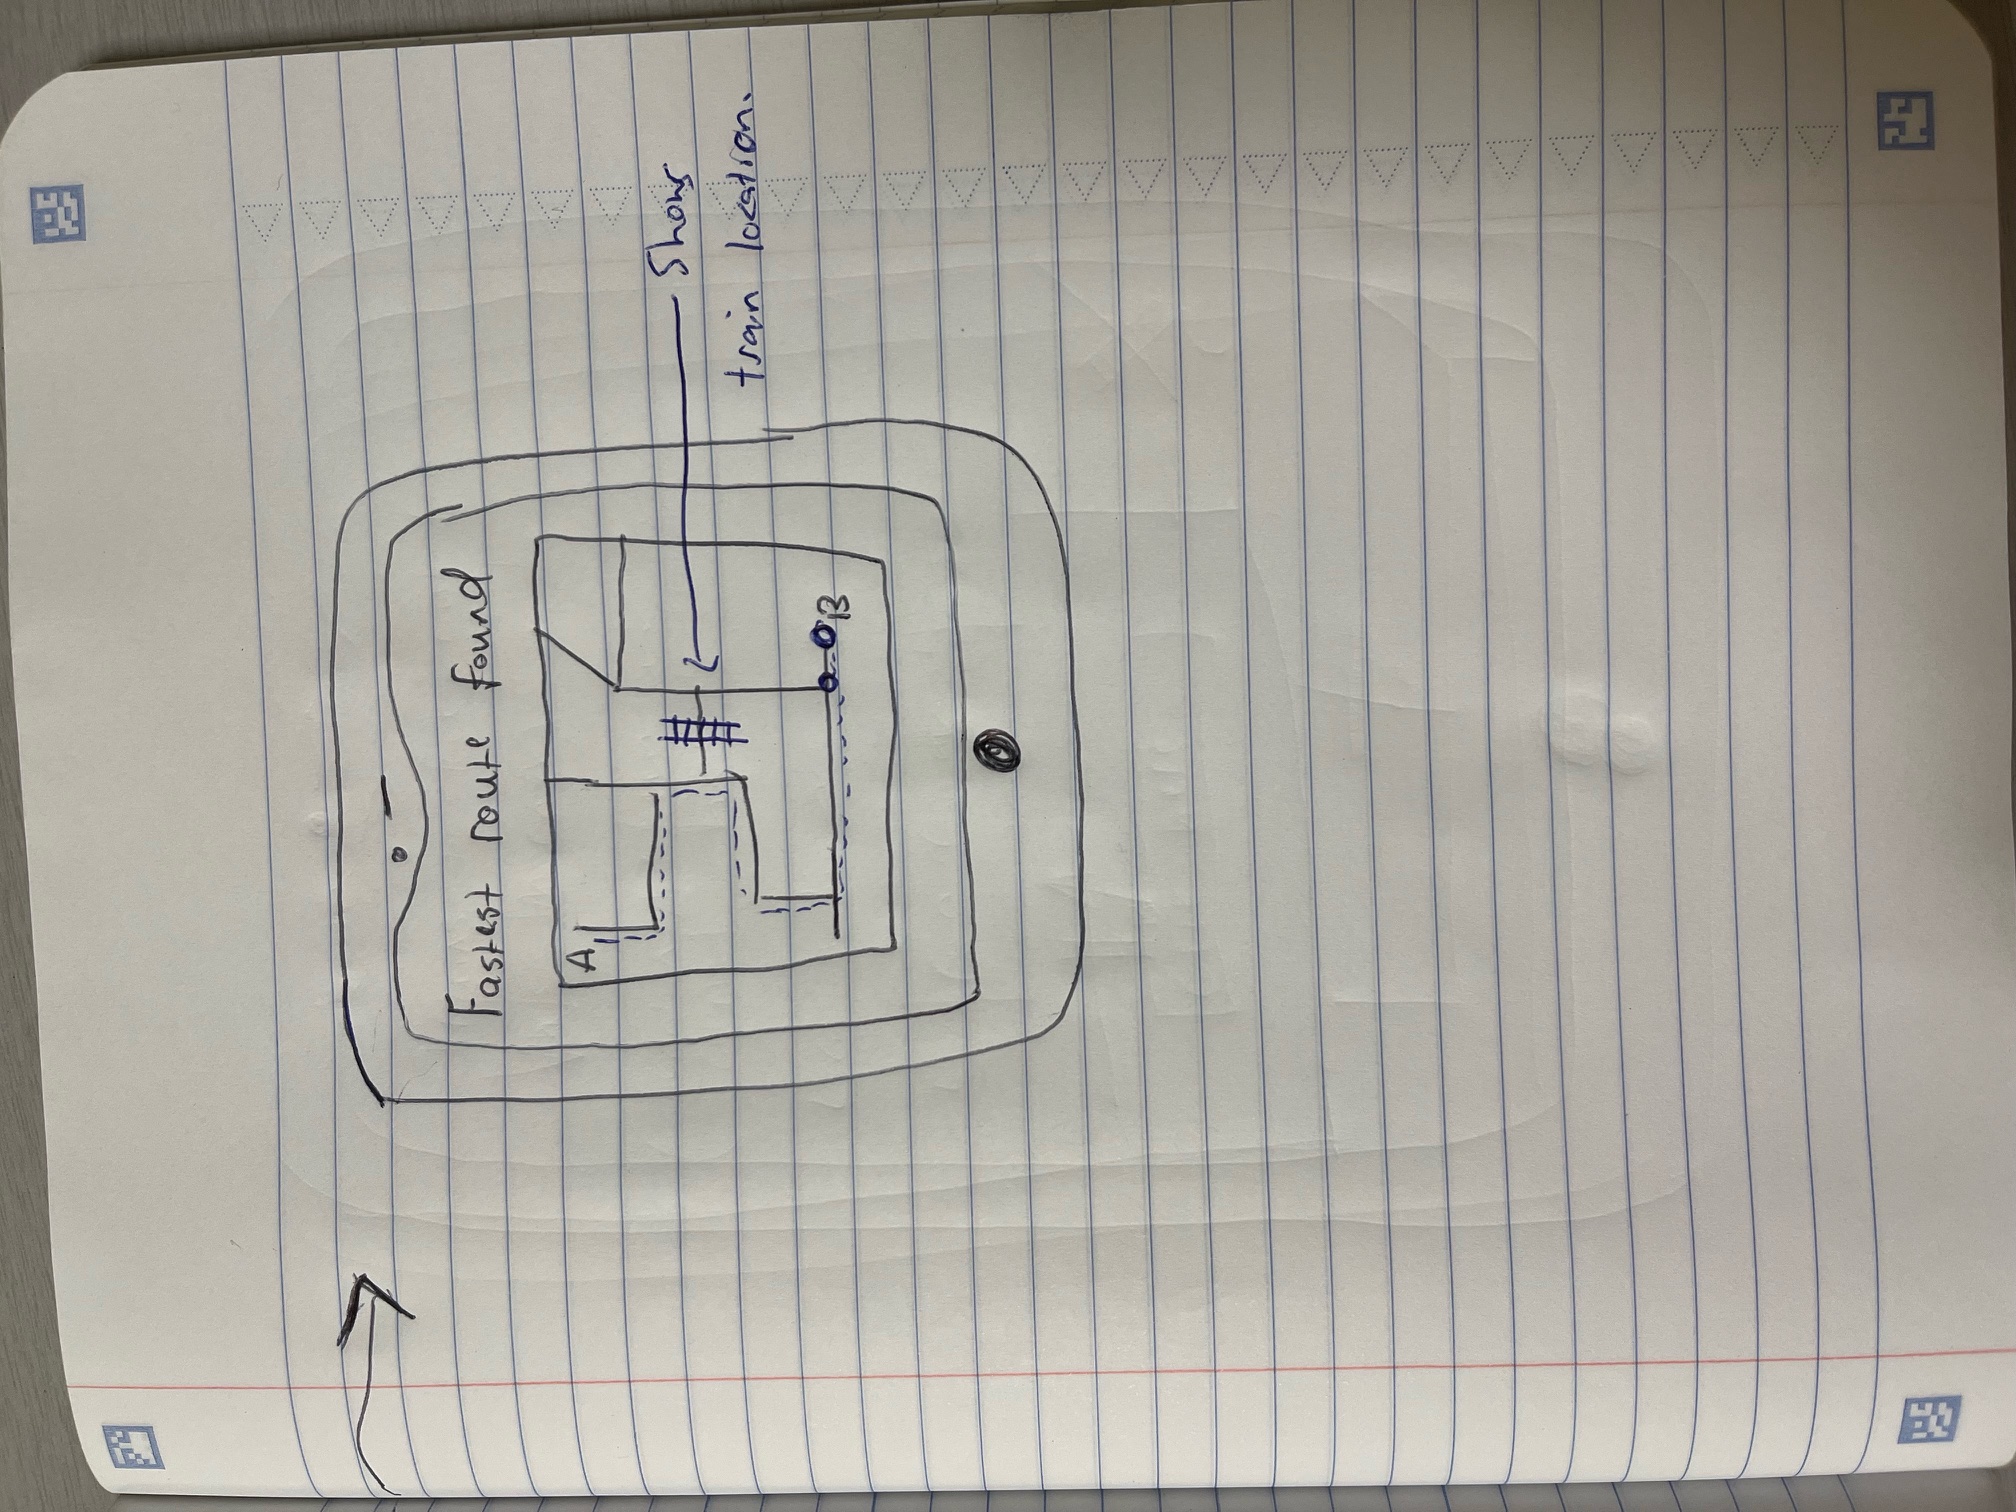 Fastest route found
A
Shows
train location.
B